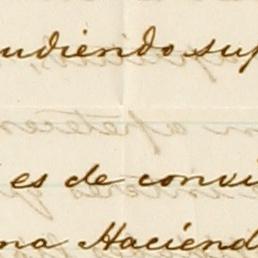 udiendo sup
es de convi
na Haciend